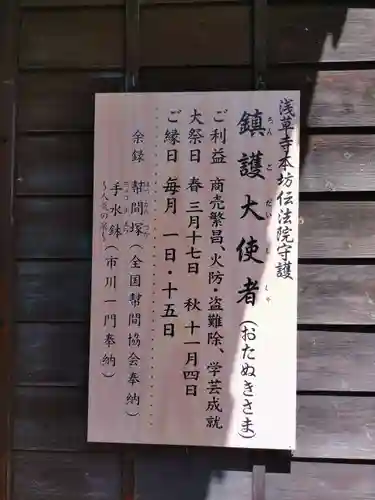 浅草寺本坊伝法院守護
鎮護大使者(おたぬきさま)
ちんごだいししゃ
ご利益 商売繁昌、火防・盗難除、学芸成就
大祭日 春 三月十七日 秋 十一月四日
ご縁日 毎月 一日・十五日
余録 幇間塚(全国幇間協会奉納)
手水鉢(市川一門奉納)